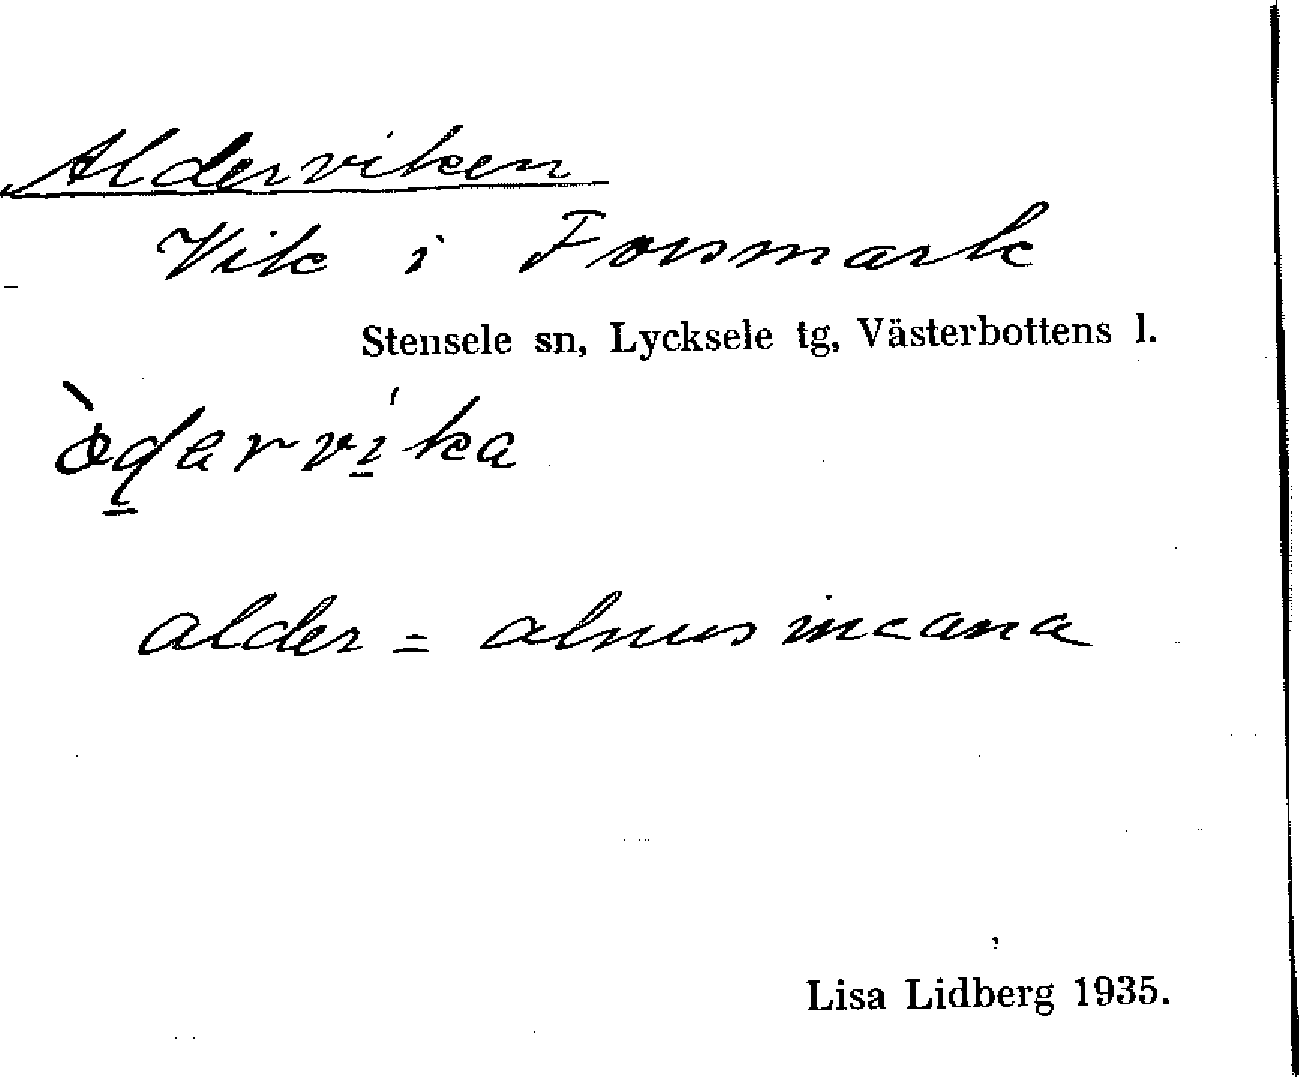 Alderviken
Vik i Forsmark
Stensele sn, Lycksele tg, Västerbottens l.
alder = alnus incana
Lisa Lidberg 1935.